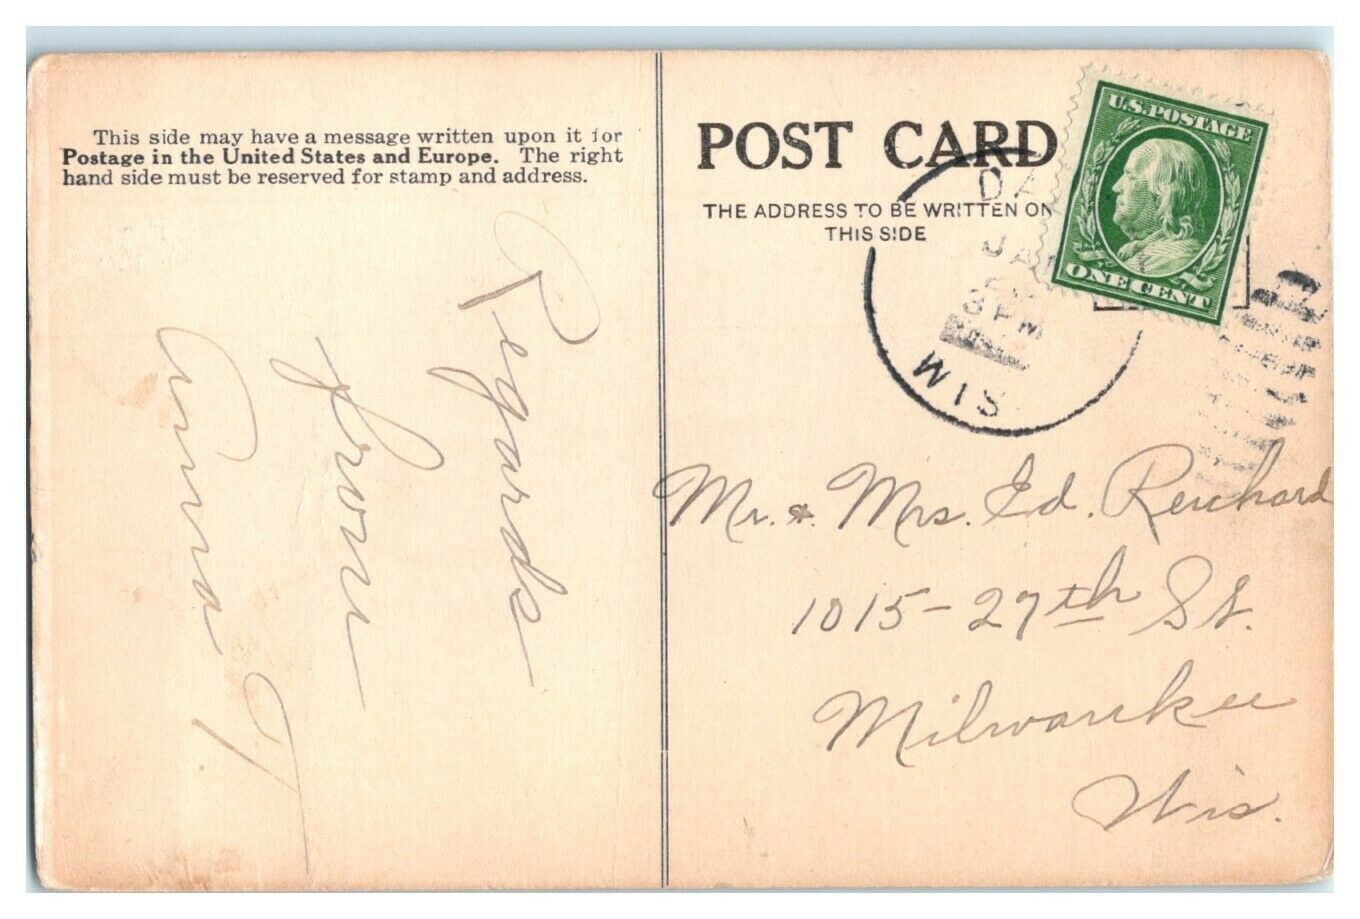 This side may have a message written upon it for
Postage in the United States and Europe. The right
hand side must be reserved for stamp and address.
Regards
from
Anna
POST CARD
THE ADDRESS TO BE WRITTEN ON
THIS SIDE
U.S. POSTAGE
ONE CENT
JAN
3 PM
WIS
Mr. & Mrs. Ed. Reichard
1015-27th St.
Milwaukee
Wis.